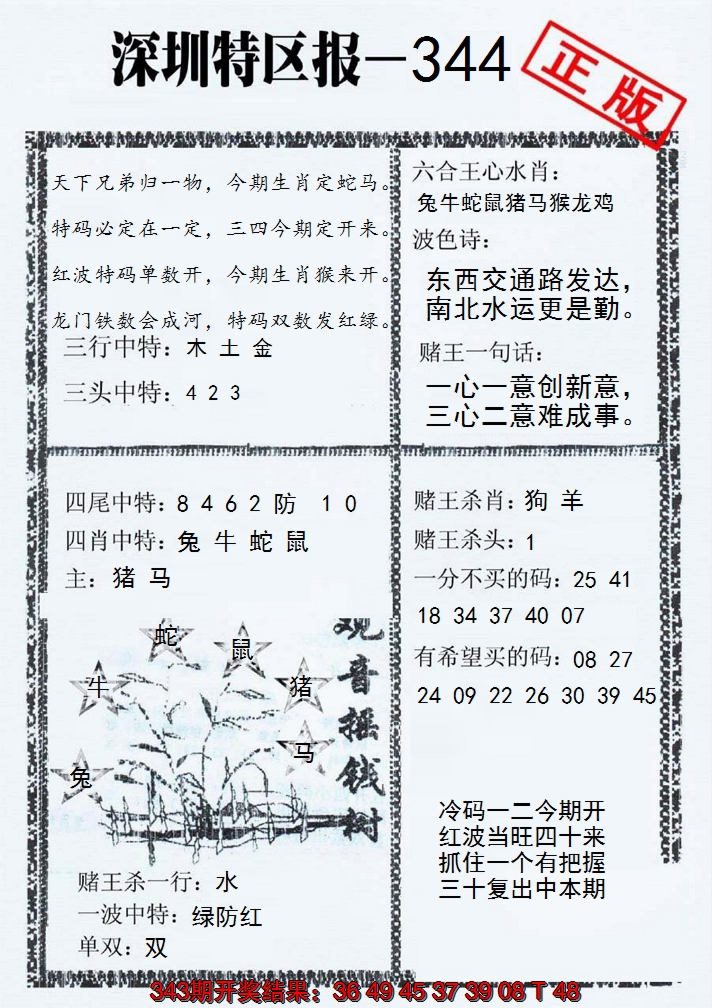 深圳特区报－344
正版
天下兄弟归一物，今期生肖定蛇马。
特码必定在一定，三四今期定开来。
红波特码单数开，今期生肖猴来开。
龙门铁数会成河，特码双数发红绿。
三行中特：木 土 金
三头中特：4 2 3
六合王心水肖：
兔牛蛇鼠猪马猴龙鸡
波色诗：
东西交通路发达，
南北水运更是勤。
赌王一句话：
一心一意创新意，
三心二意难成事。
四尾中特：8 4 6 2 防 1 0
四肖中特：兔 牛 蛇 鼠
主：猪 马
蛇
鼠
牛
猪
马
兔
观音摇钱树
赌王杀一行：水
一波中特：绿防红
单双：双
赌王杀肖：狗 羊
赌王杀头：1
一分不买的码：25 41
18 34 37 40 07
有希望买的码：08 27
24 09 22 26 30 39 45
冷码一二今期开
红波当旺四十来
抓住一个有把握
三十复出中本期
343期开奖结果：36 49 45 37 39 08 T 48